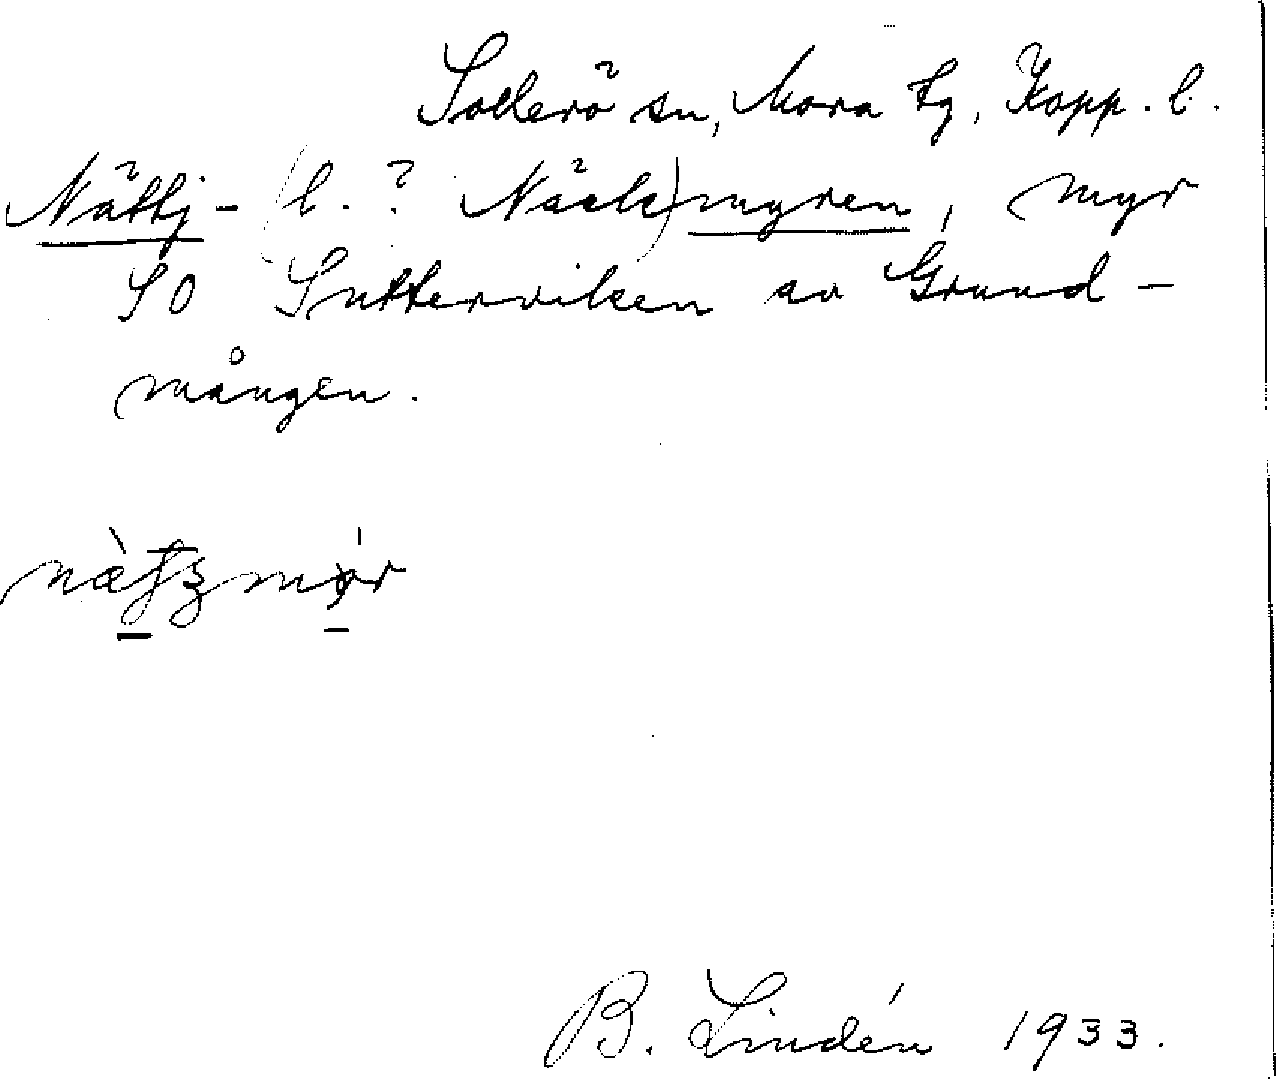 Sollerö sn, Mora tg, Kopp. l.
Nättj- (l. ? Näck)myren, myr
SO Sutterviken av Grund-
mången.
B. Lindén 1933.